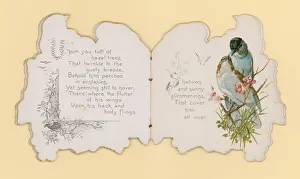 Upon you tuft of
hazel trees,
That twinkle to the
gusty breeze,
Behold him perched in
ecstasies,
Yet seeming still to hover,
There! where the flutter
of his wings
Upon his back and
body flings
Shadows
and sunny
glimmerings,
That cover
him
all over